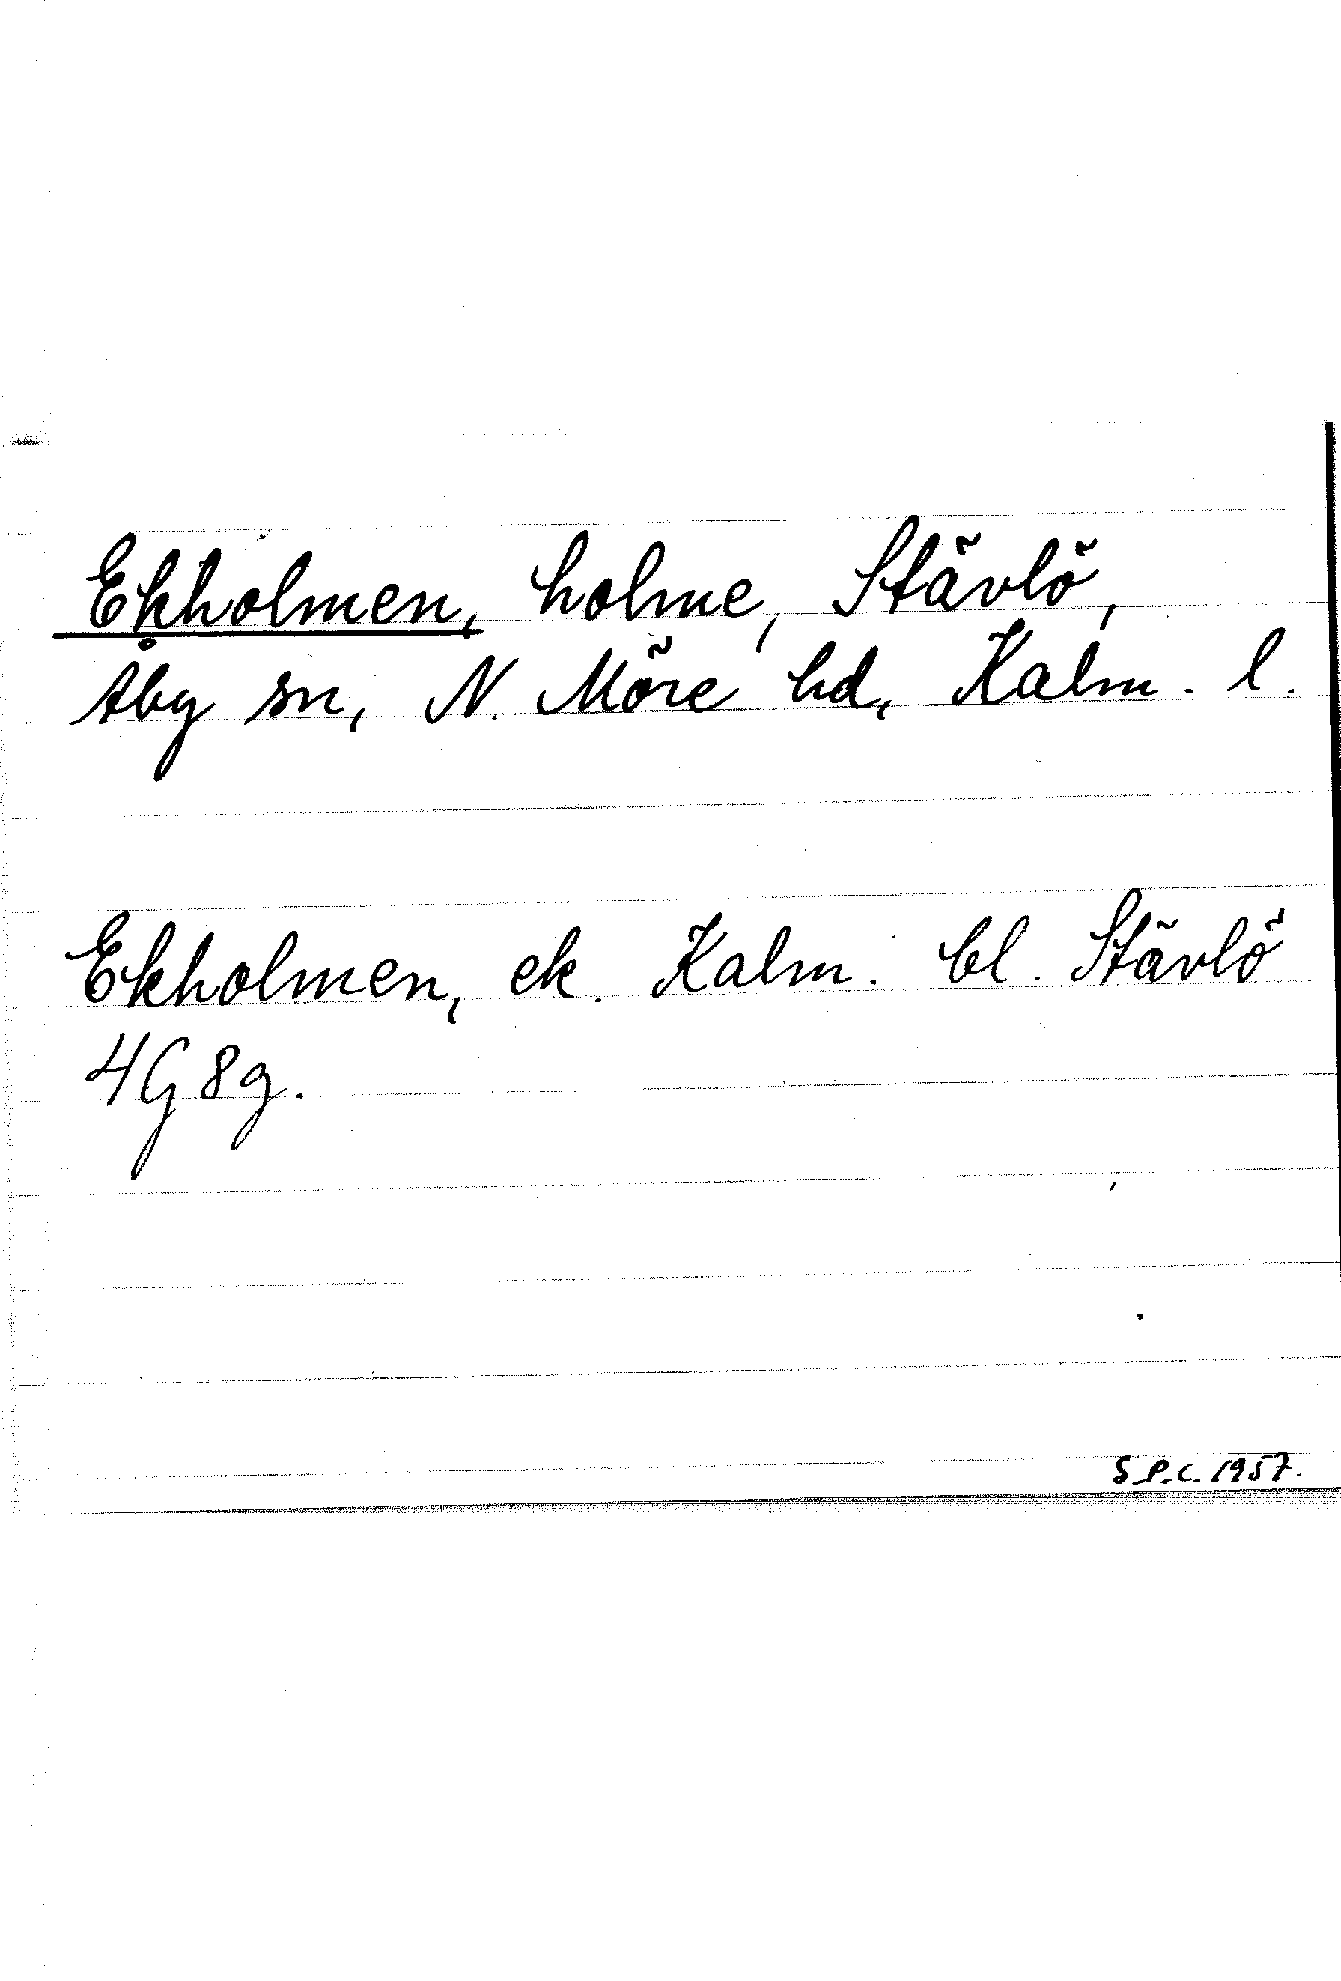 Ekholmen, holme, Stävlö,
Åby sn, N. Möre hd, Kalm. l.
Ekholmen, ek. Kalm. bl. Stävlö
4G 8g.
S.P.C. 1957.